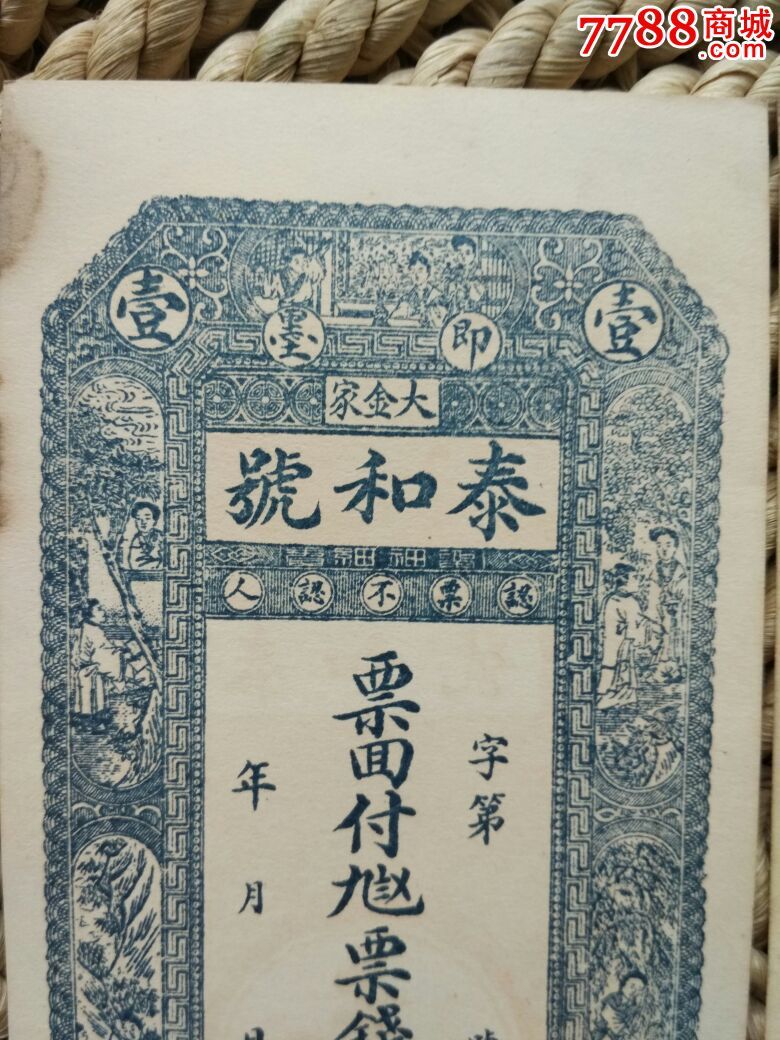 7788商城
.com
壹 即墨 壹
大金家
泰和號
認票不認人
字第
票回付
票錢
年月